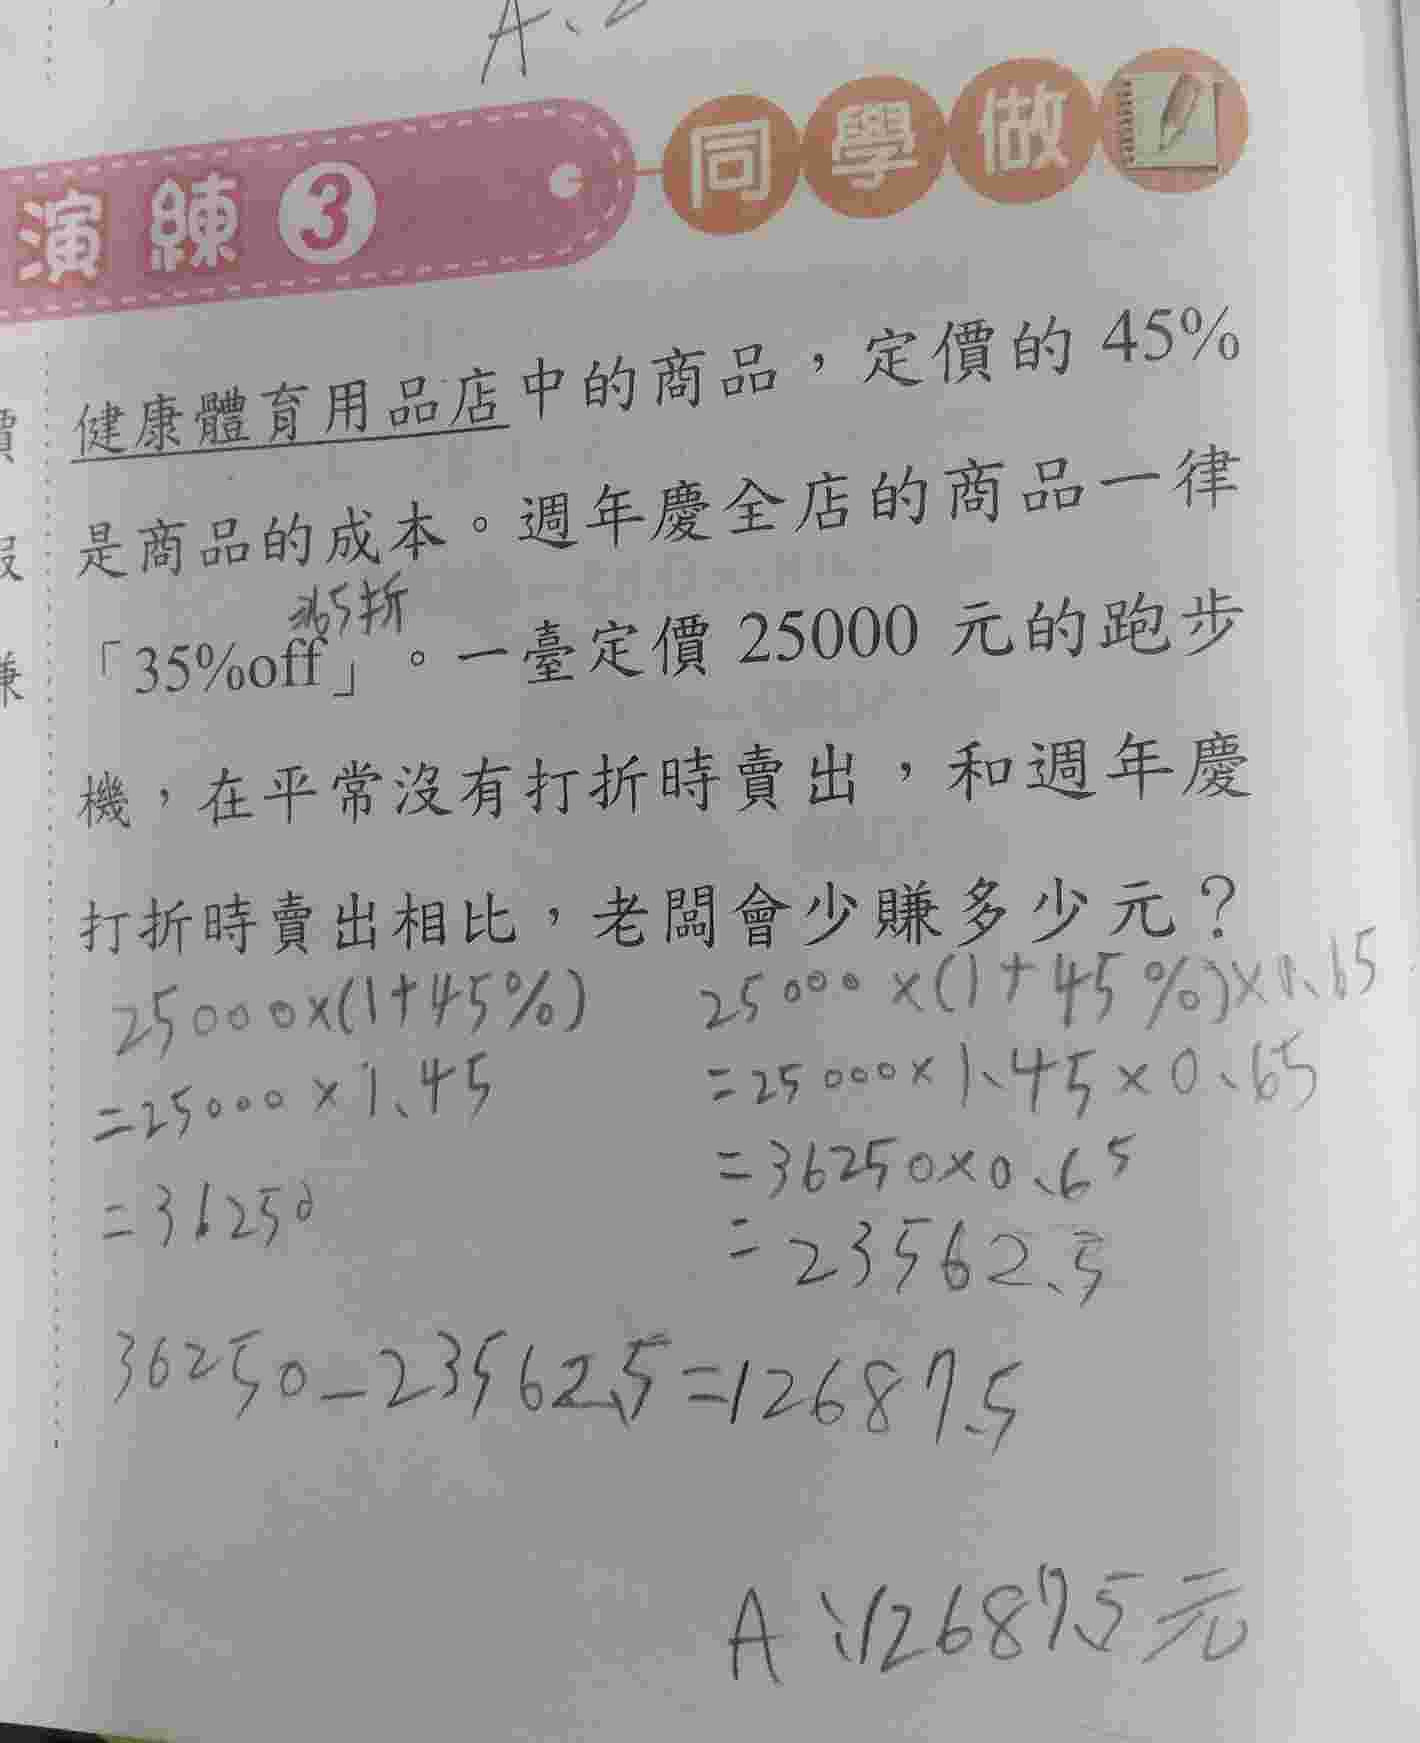 A、2
演練3 同學做
健康體育用品店中的商品，定價的 45%
是商品的成本。週年慶全店的商品一律
65折
「35%off」。一臺定價 25000 元的跑步
機，在平常沒有打折時賣出，和週年慶
打折時賣出相比，老闆會少賺多少元？
25000×(1+45%)
=25000×1.45
=36250
25000×(1+45%)×0.65
=25000×1.45×0.65
=36250×0.65
=23562.5
36250-23562.5=12687.5
A：12687.5元
價
服
賺